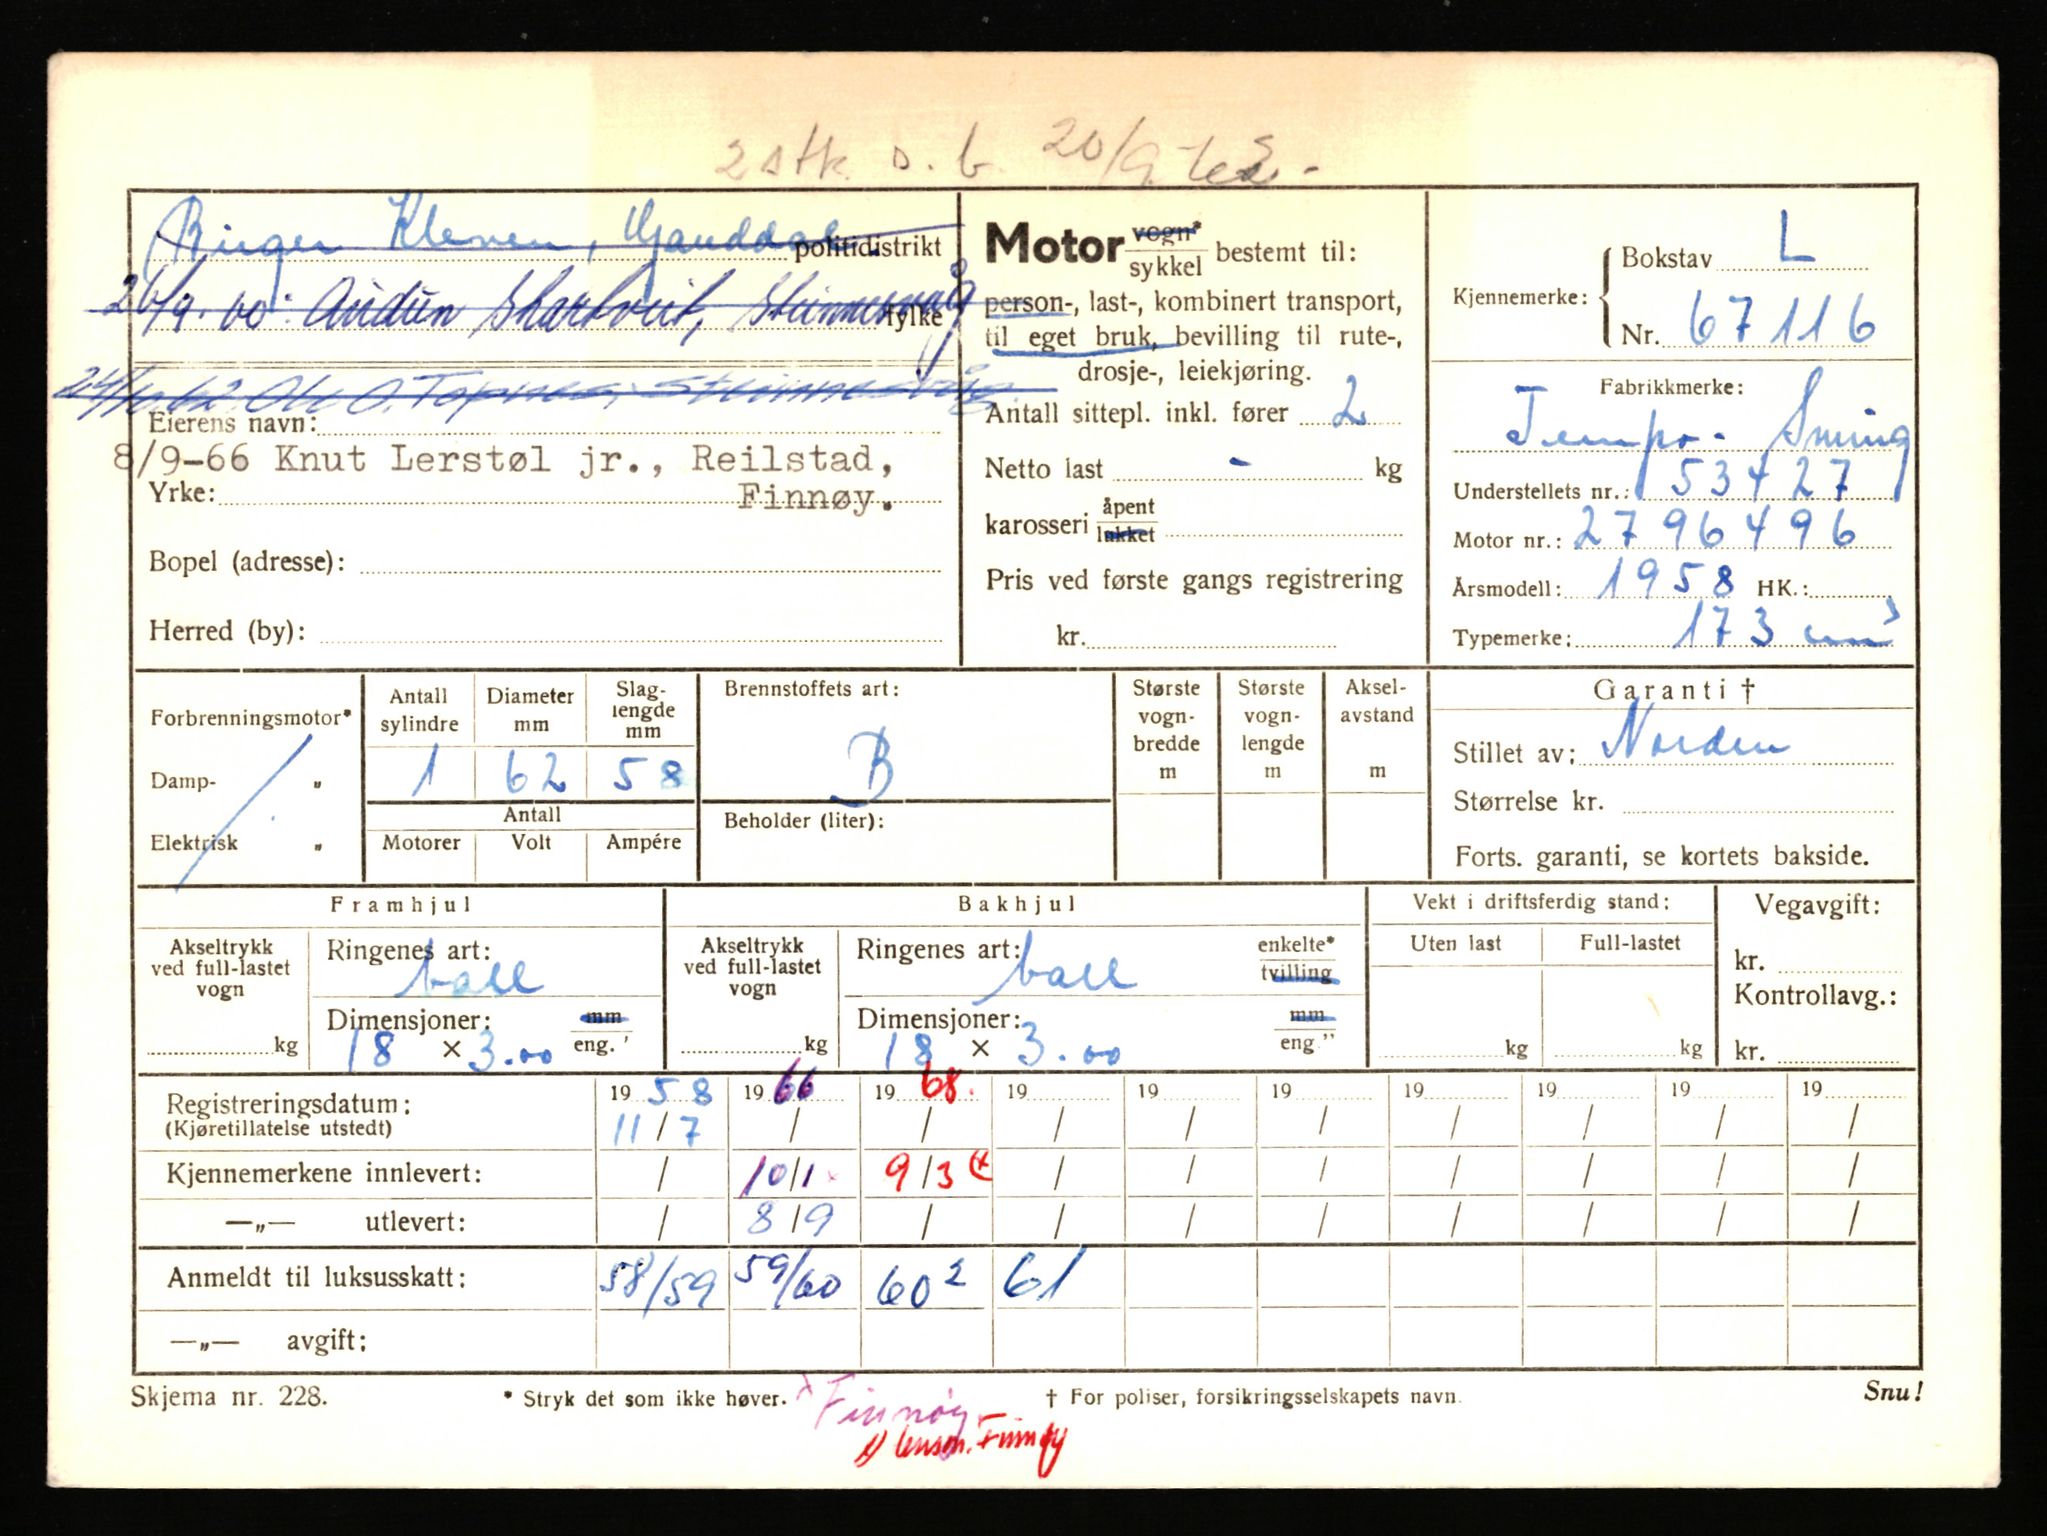 2 stk. s. b. 20/9.
Birger Kleven, Ganddal politidistrikt
26/9.60: Audun Skartveit, Steinnesvåg fylke
24/ 62. Ole O. Steinnesvåg.
Eierens navn:
8/9-66 Knut Lerstøl jr., Reilstad,
Yrke: Finnøy.
Bopel (adresse):
Herred (by):
Motor vogn* sykkel bestemt til:
person-, last-, kombinert transport,
til eget bruk, bevilling til rute-,
drosje-, leiekjøring.
Antall sittepl. inkl. fører 2
Netto last - kg
karosseri åpent lukket
Pris ved første gangs registrering
kr.
Kjennemerke: Bokstav L
Nr. 67116
Fabrikkmerke:
Tempo- Swing
Understellets nr.: 153427
Motor nr.: 2796496
Årsmodell: 1958 HK.:
Typemerke: 173 cm³
Forbrenningsmotor*
Damp- „
Elektrisk „
Antall sylindre 1
Diameter mm 62
Slag-lengde mm 58
Antall
Motorer Volt Ampére
Brennstoffets art:
B
Beholder (liter):
Største vogn-bredde m
Største vogn-lengde m
Aksel-avstand m
Garanti †
Stillet av: Norden
Størrelse kr.
Forts. garanti, se kortets bakside.
Framhjul
Akseltrykk ved full-lastet vogn
kg
Ringenes art:
ball
Dimensjoner: mm
18 × 3.00 eng. "
Bakhjul
Akseltrykk ved full-lastet vogn
kg
Ringenes art: enkelte*
ball tvilling
Dimensjoner: mm
18 × 3.00 eng "
Vekt i driftsferdig stand:
Uten last Full-lastet
kg kg
Vegavgift:
kr.
Kontrollavg.:
kr.
Registreringsdatum: 19 58 19 66 19 68. 19 19 19 19 19 19 19
(Kjøretillatelse utstedt) 11/7 / / / / / / / / /
Kjennemerkene innlevert: / 10/1 x 9/3 x / / / / / / /
—„— utlevert: / 8/9 / / / / / / / /
Anmeldt til luksusskatt: 58/59 59/60 60² 61
—„— avgift:
Skjema nr. 228. * Stryk det som ikke høver. † For poliser, forsikringsselskapets navn. Snu!
x Finnøy
x) lensm. Finnøy